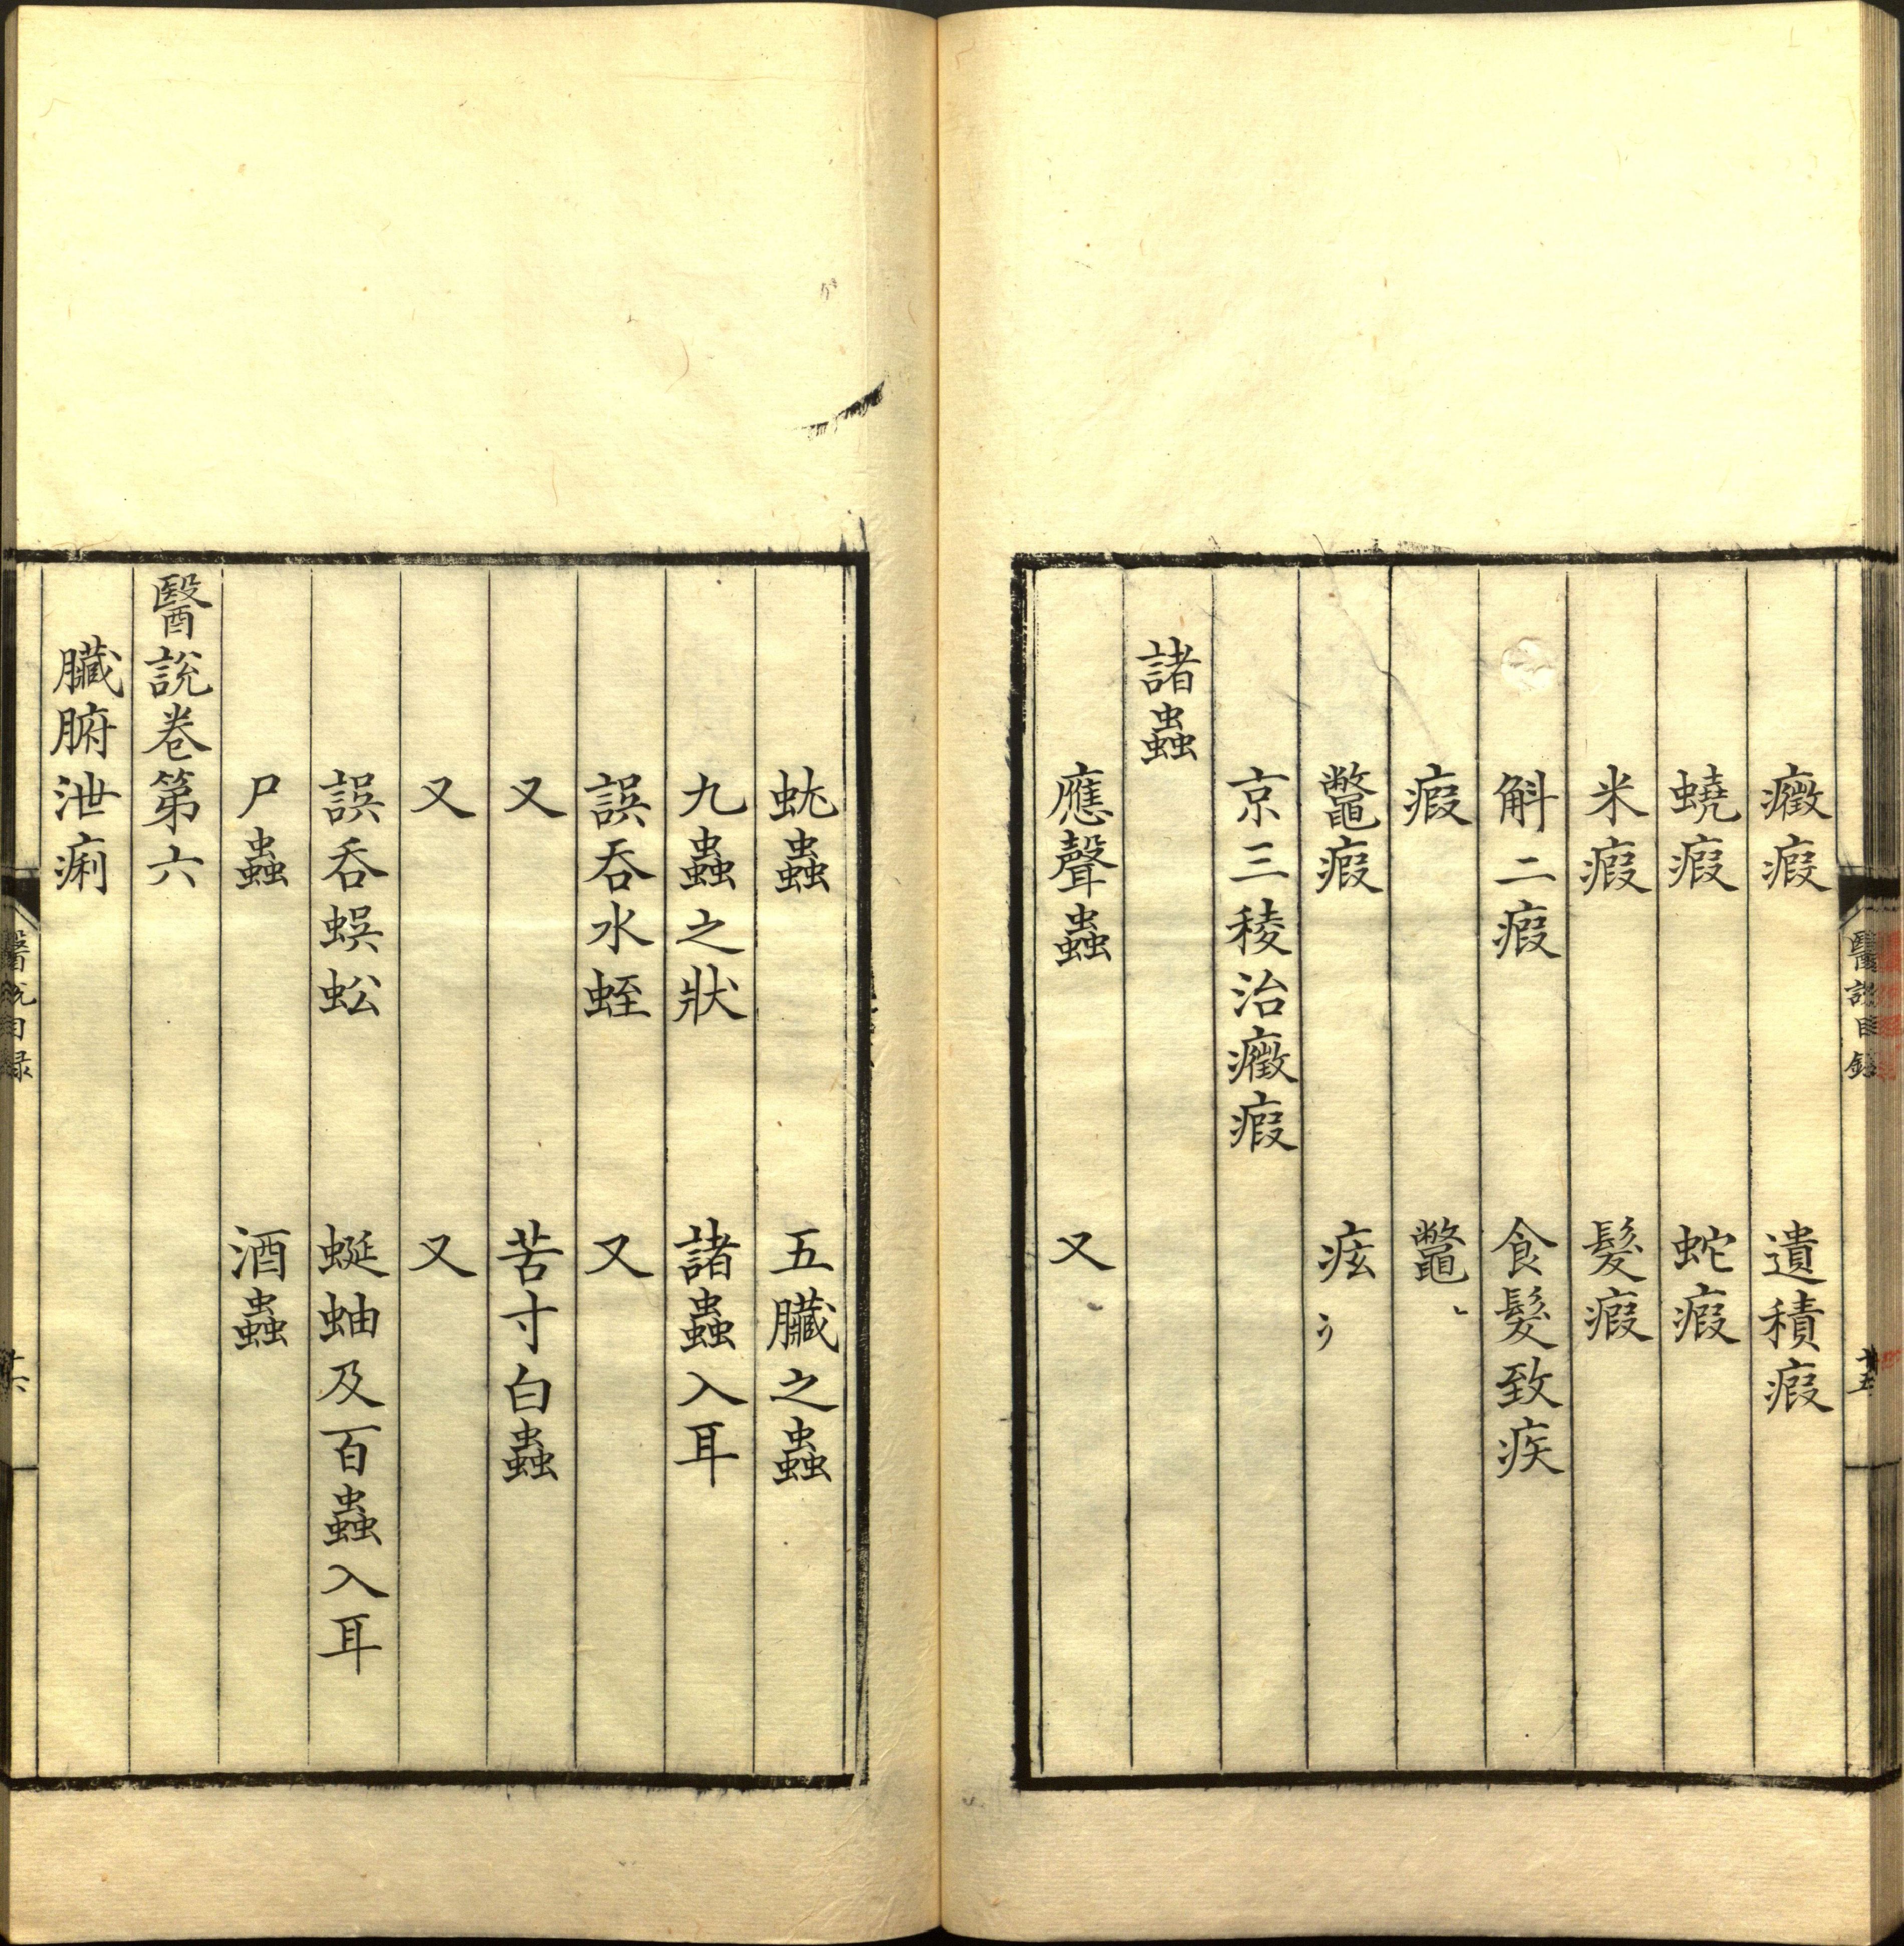 癥瘕　遺積瘕
蟯瘕　蛇瘕
米瘕　髮瘕
斛二瘕　食髮致疾
瘕　鼈
鼈瘕　痃
京三稜治癥瘕
諸蟲
應聲蟲　又
醫說目錄　十五
蚘蟲　五臟之蟲
九蟲之狀　諸蟲入耳
誤吞水蛭　又
又　苦寸白蟲
又　又
誤吞蜈蚣　蜒蚰及百蟲入耳
尸蟲　酒蟲
醫說卷第六
臟腑泄痢
醫說目録　十六